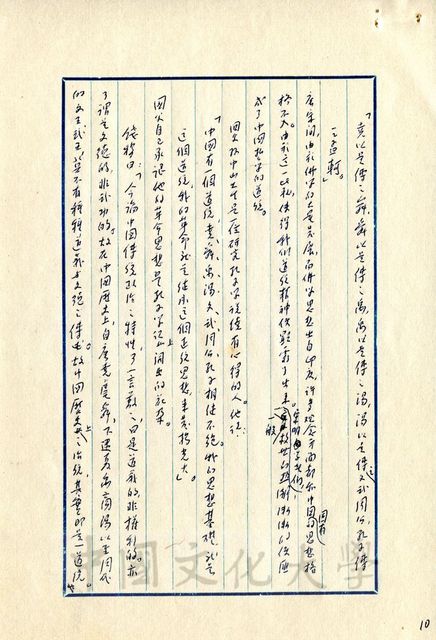 「堯以是傳之舜，舜以是傳之禹，禹以是傳之湯，湯以是傳之文武周公，孔子傳
之孟軻。」
唐宋間，由於佛學的大量發展，而佛學思想出自印度，許多觀念方面都和中國固有的思想格
格不入。由於這一比較，使得我們道統精神
成了中國哲學的道統。
國父孫中山先生是一位研究孔子學說很有心得的人。他說：
「中國有一個道統，堯舜禹湯文武周公孔子相繼不絕。我的思想基礎，就是
這個道統，我的革命就是繼承這個正統思想，來發揚光大」。
國父自己承認他的革命思想是孔子學說上
錢穆曰：「今論中國傳統政治之特性，了一言蔽之曰是道義的，非權利的。亦
可謂是文德的，非武功的。故在中國歷史上，自唐堯虞舜，下逮夏禹商湯以至周代
的文王武王，莫不有種種道義與文德之傳述。故中國歷史上之治統，其實即是一道統。
中國文化大學
10